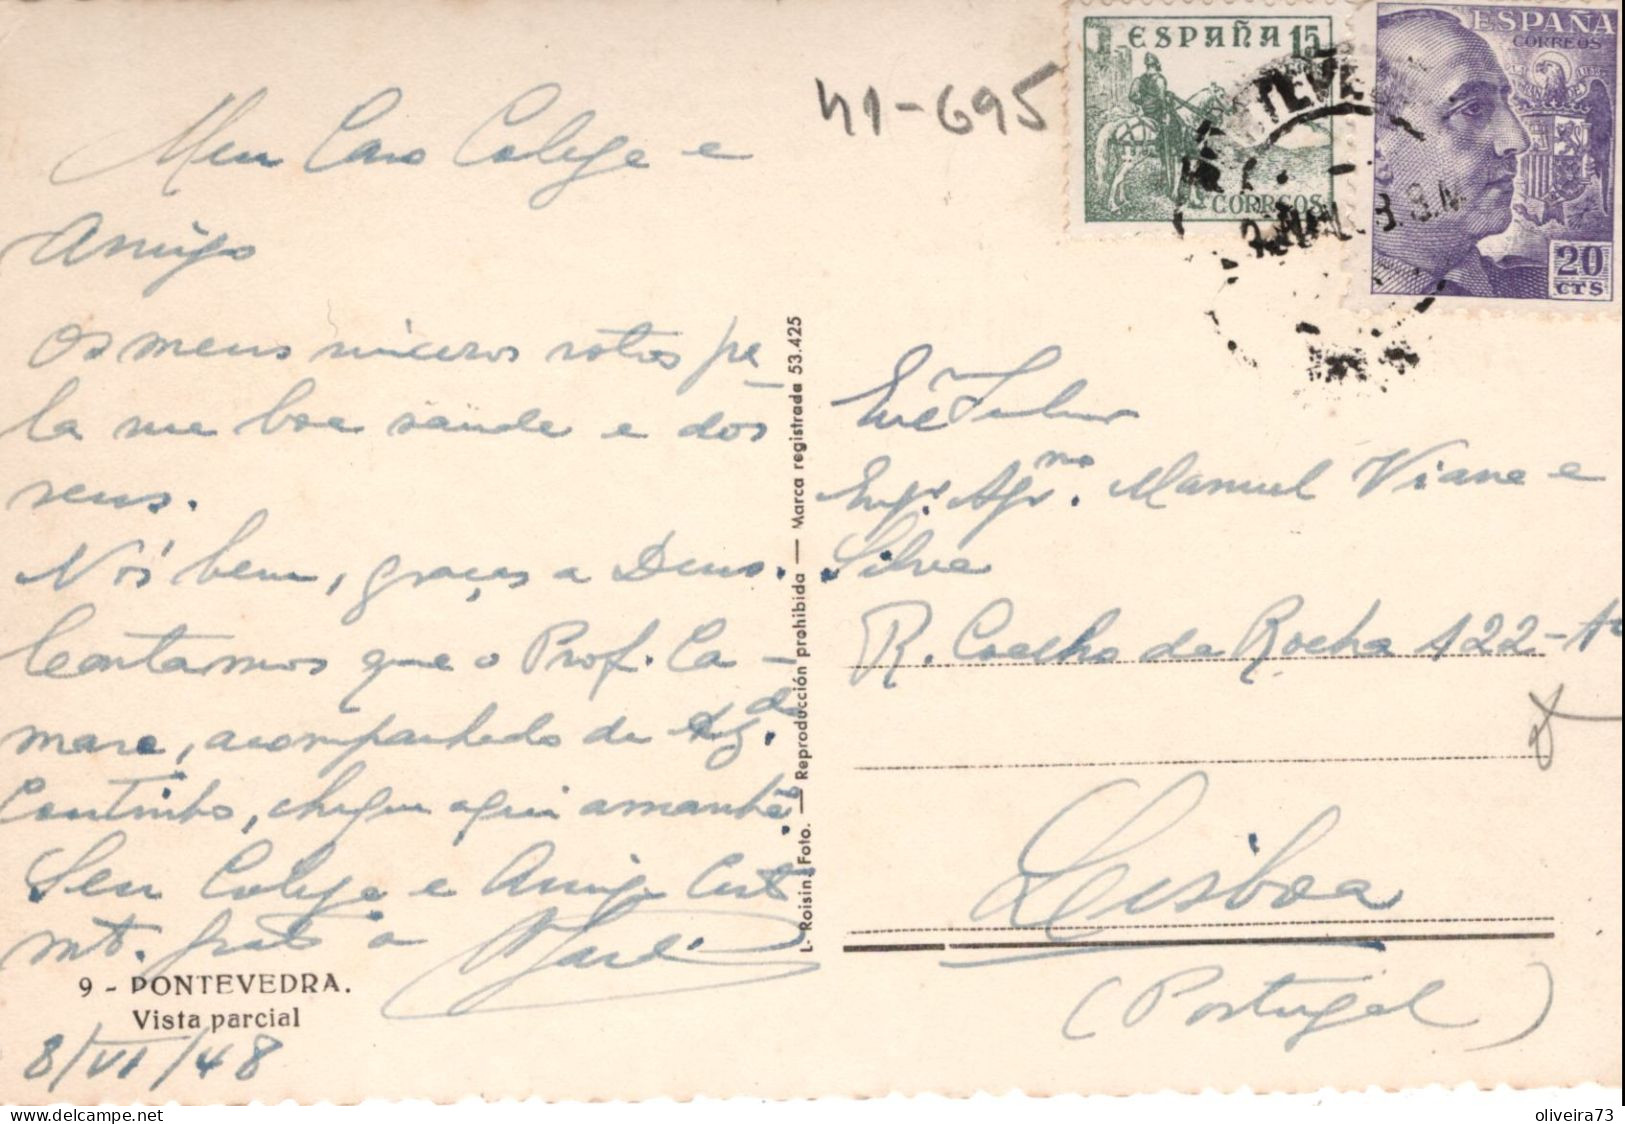 41-695
ESPAÑA 15
CORREOS
ESPAÑA
CORREOS
20
CTS
Meu Caro Colega e
Amigo
Os meus sinceros votos pe
la sua boa saude e dos
seus.
Nós bem, graças a Deus.
Contamos que o Prof. Ca-
mara, acompanhado da
Coutinho, chegue aqui amanhã.
Seu Colega e Amigo
mto. grato
9 - PONTEVEDRA.
Vista parcial
8/VI/48
L. Roisin, Foto. — Reproducción prohibida — Marca registrada 53.425
Senhor
Engr. Agr. Manuel Viana e
Silva
R. Coelho da Rocha 122-1º
Lisboa
(Portugal)
oliveira73